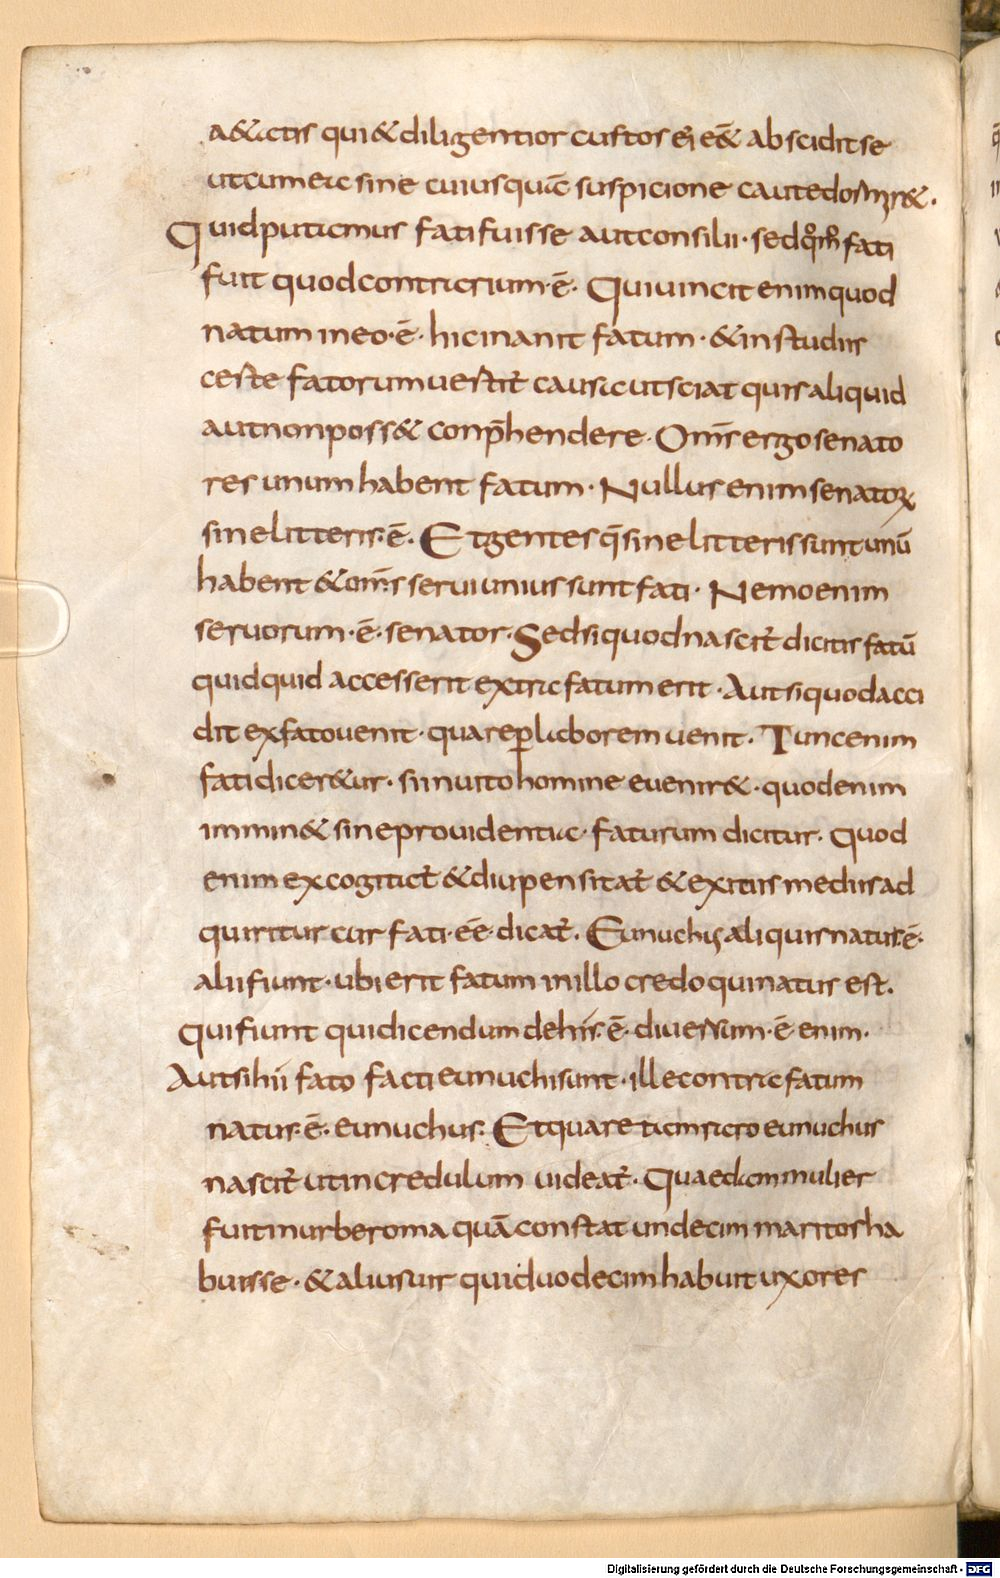 a&atis qui & diligentior custos ei eē& abscidit se
ut cum ea sine cuiusquā suspicione caute dormir&.
Quid putamus fati fuisse aut consilii · sed qm̄ fati
fuit quod contrarium · ē · Qui uincit enim quod
natum in eo · ē · hic inanit fatum · & in studiis
ceste fatorum uestit̄ causa ut sciat quis aliquid
aut non poss& conp̄hendere · Om̄s ergo senato
res unum habent fatum · Nullus enim senator
sine litteris · ē · Et gentes q̄ sine litteris sunt unū
habent & om̄s serui unius sunt fati · Nemo enim
seruorum · ē · senator · Sed si quod nascit̄ dicitis fatū
quidquid accesserit extra fatum erit · Aut si quod acci
dit ex fato uenit · quare per laborem uenit · Tunc enim
fati dicer&ur · si inuito homine euenir& · quod enim
immin& sine prouidentia · faturum dicitur · Quod
enim excogitat̄ & diu pensitat̄ & exitus mediis ad
quiritur cur fati · eē · dicat̄ · Eunuchis aliquis natus · ē ·
alii fiunt · ubi erit fatum in illo credo qui natus est.
Qui fiunt quid dicendum de hiis · ē · diuersum · ē · enim ·
Aut si hii fato facti eunuchi sunt · ille contra fatum
natus · ē · eunuchus · Et quare tam raro eunuchus
nascit̄ ut incredulum uideat̄ · Quaedam mulier
fuit in urbe roma quā constat undecim maritos ha
buisse · & alius uir qui duodecim habuit uxores
Digitalisierung gefördert durch die Deutsche Forschungsgemeinschaft - DFG